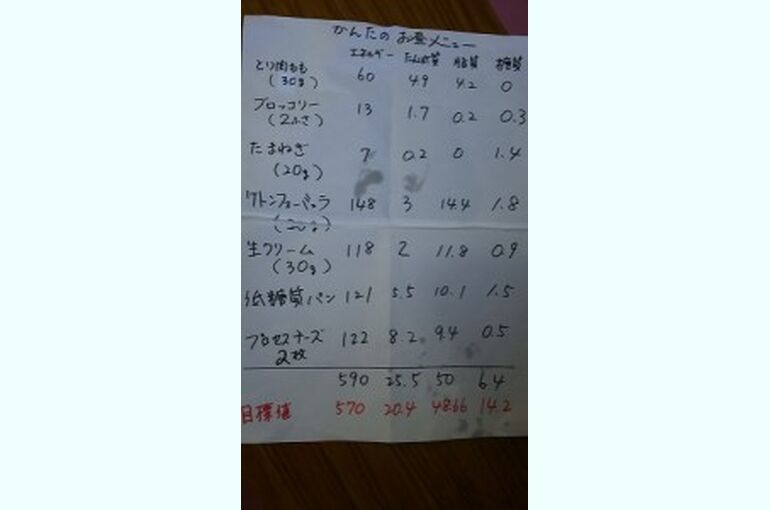 かんたの お昼メニュー
エネルギー たんぱく質 脂質 糖質
とり肉もも 60 4.9 4.2 0
(30g)
ブロッコリー 13 1.7 0.2 0.3
(2ふさ)
たまねぎ 7 0.2 0 1.4
(20g)
ケトンフォーミュラ 148 3 14.4 1.8
(20g)
生クリーム 118 2 11.8 0.9
(30g)
低糖質パン 121 5.5 10.1 1.5
プロセスチーズ 122 8.2 9.4 0.5
2枚
590 25.5 50 6.4
目標値 570 20.4 48.66 14.2